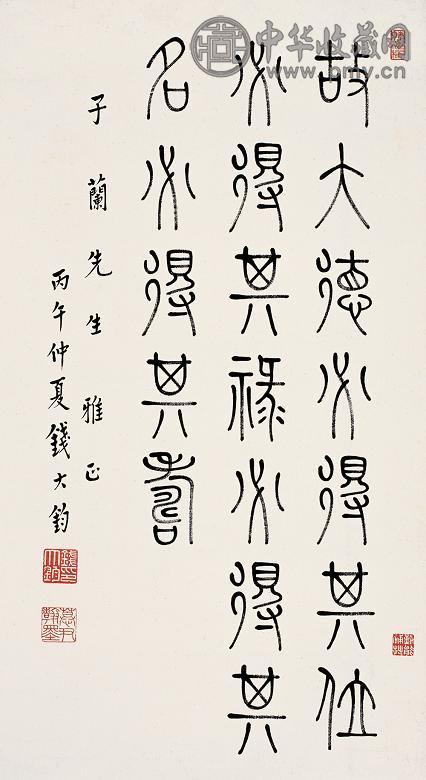 故大德必得其位
必得其祿必得其
名必得其壽
子蘭先生雅正
丙午仲夏錢大鈞
中华收藏网